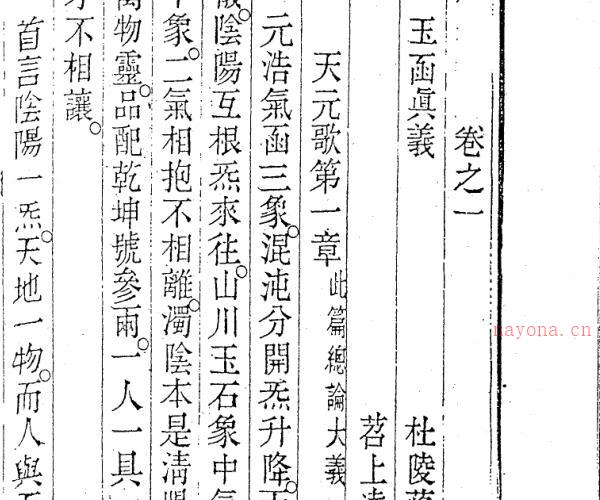 卷之一
玉函眞義 杜陵
苕上
天元歌第一章 此篇總論大義
元浩氣函三象。混沌分開炁升降。
陰陽互根炁來往。山川玉石象中氣
象。二氣相抱不相離。濁陰本是清陽
萬物靈。品配乾坤號參兩。一人一具
才不相讓。
首言陰陽一炁。天地一物。而人與
nayona.cn